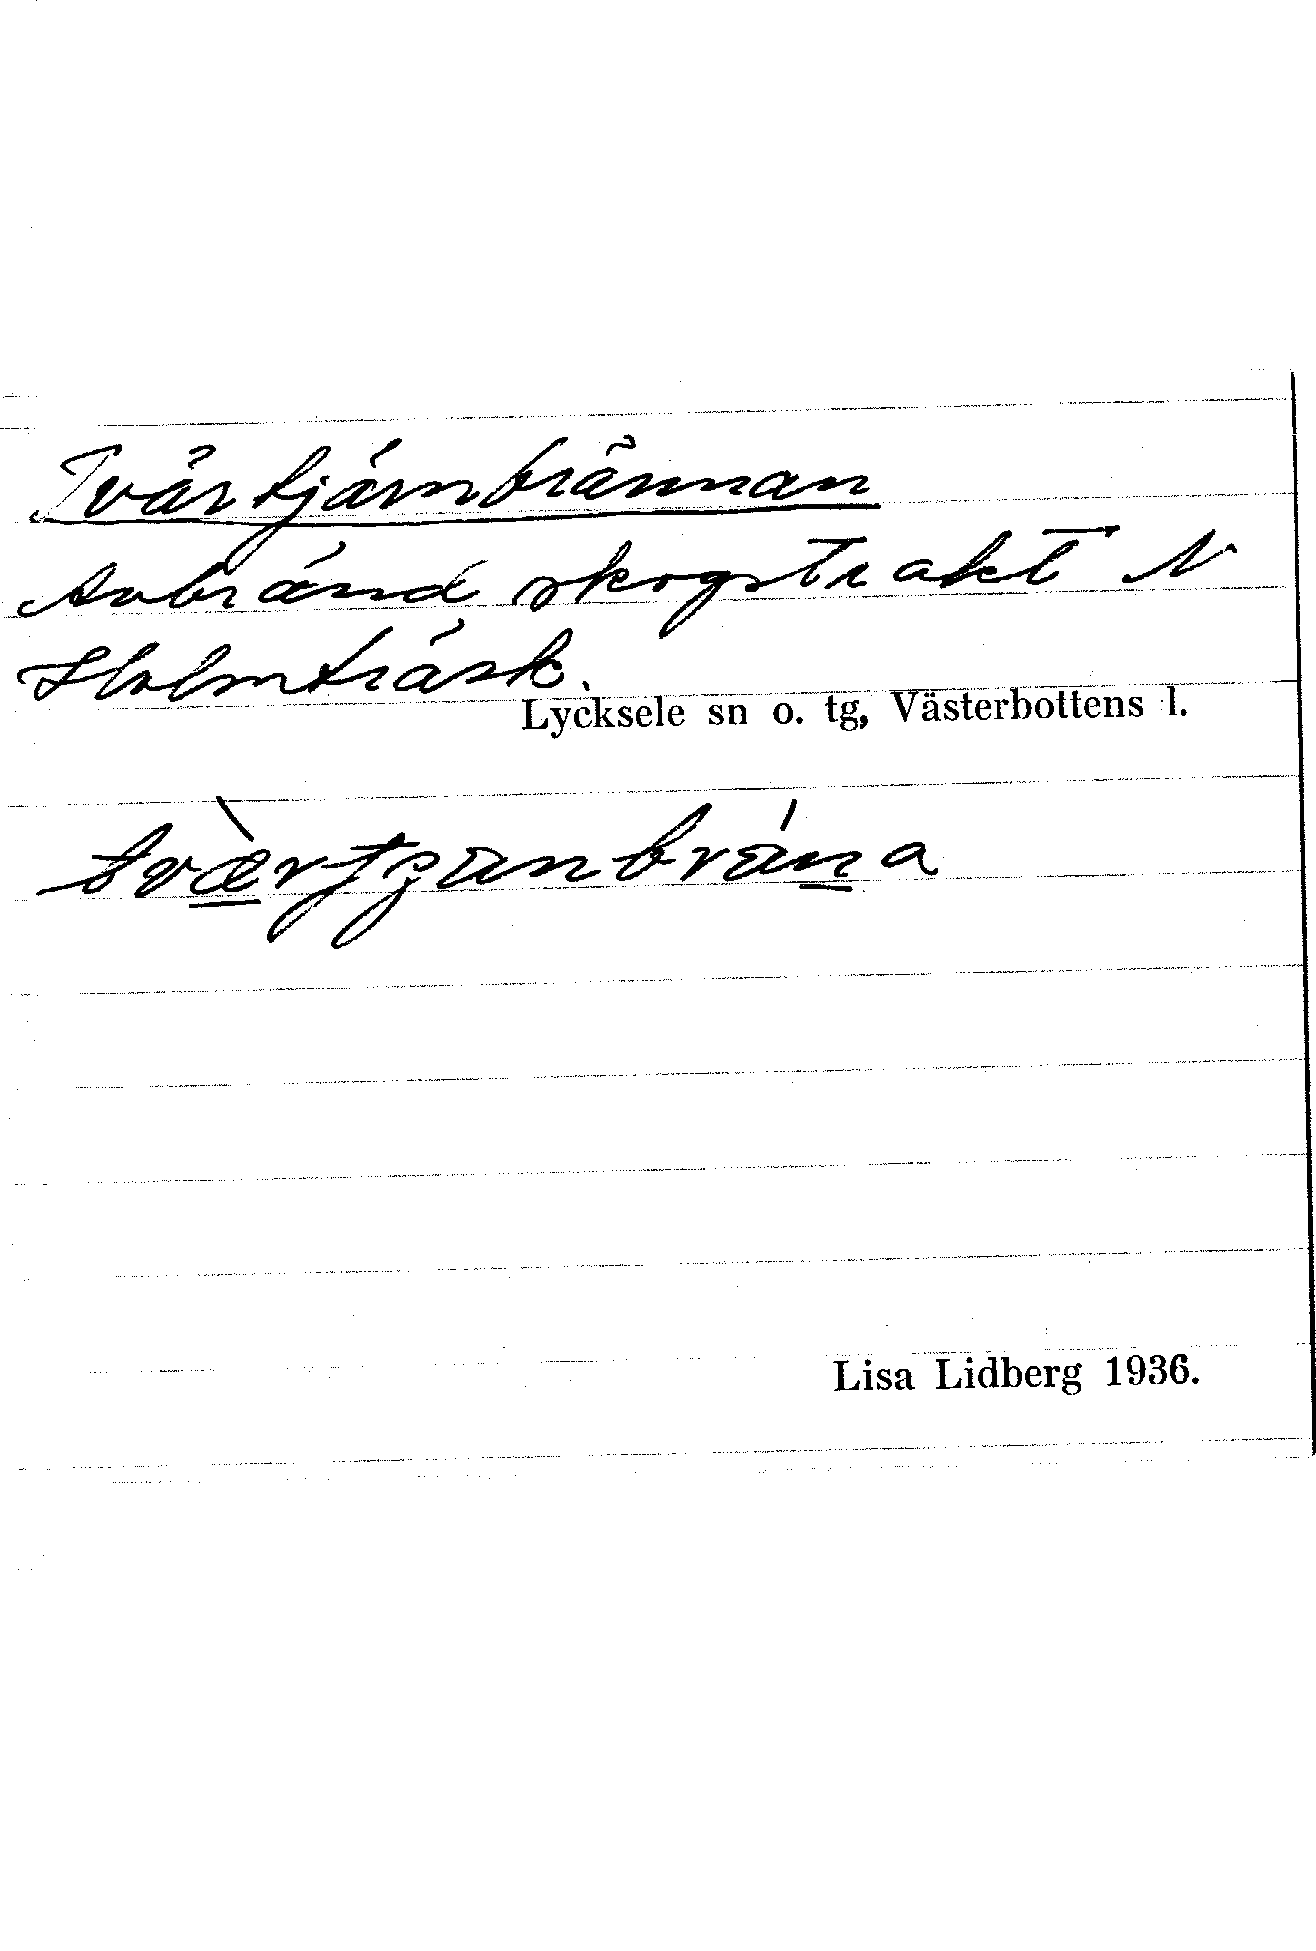 Tvärtjärnbrännan
Avbränd skogstrakt N
Holmträsk.
Lycksele sn o. tg, Västerbottens l.
Lisa Lidberg 1936.